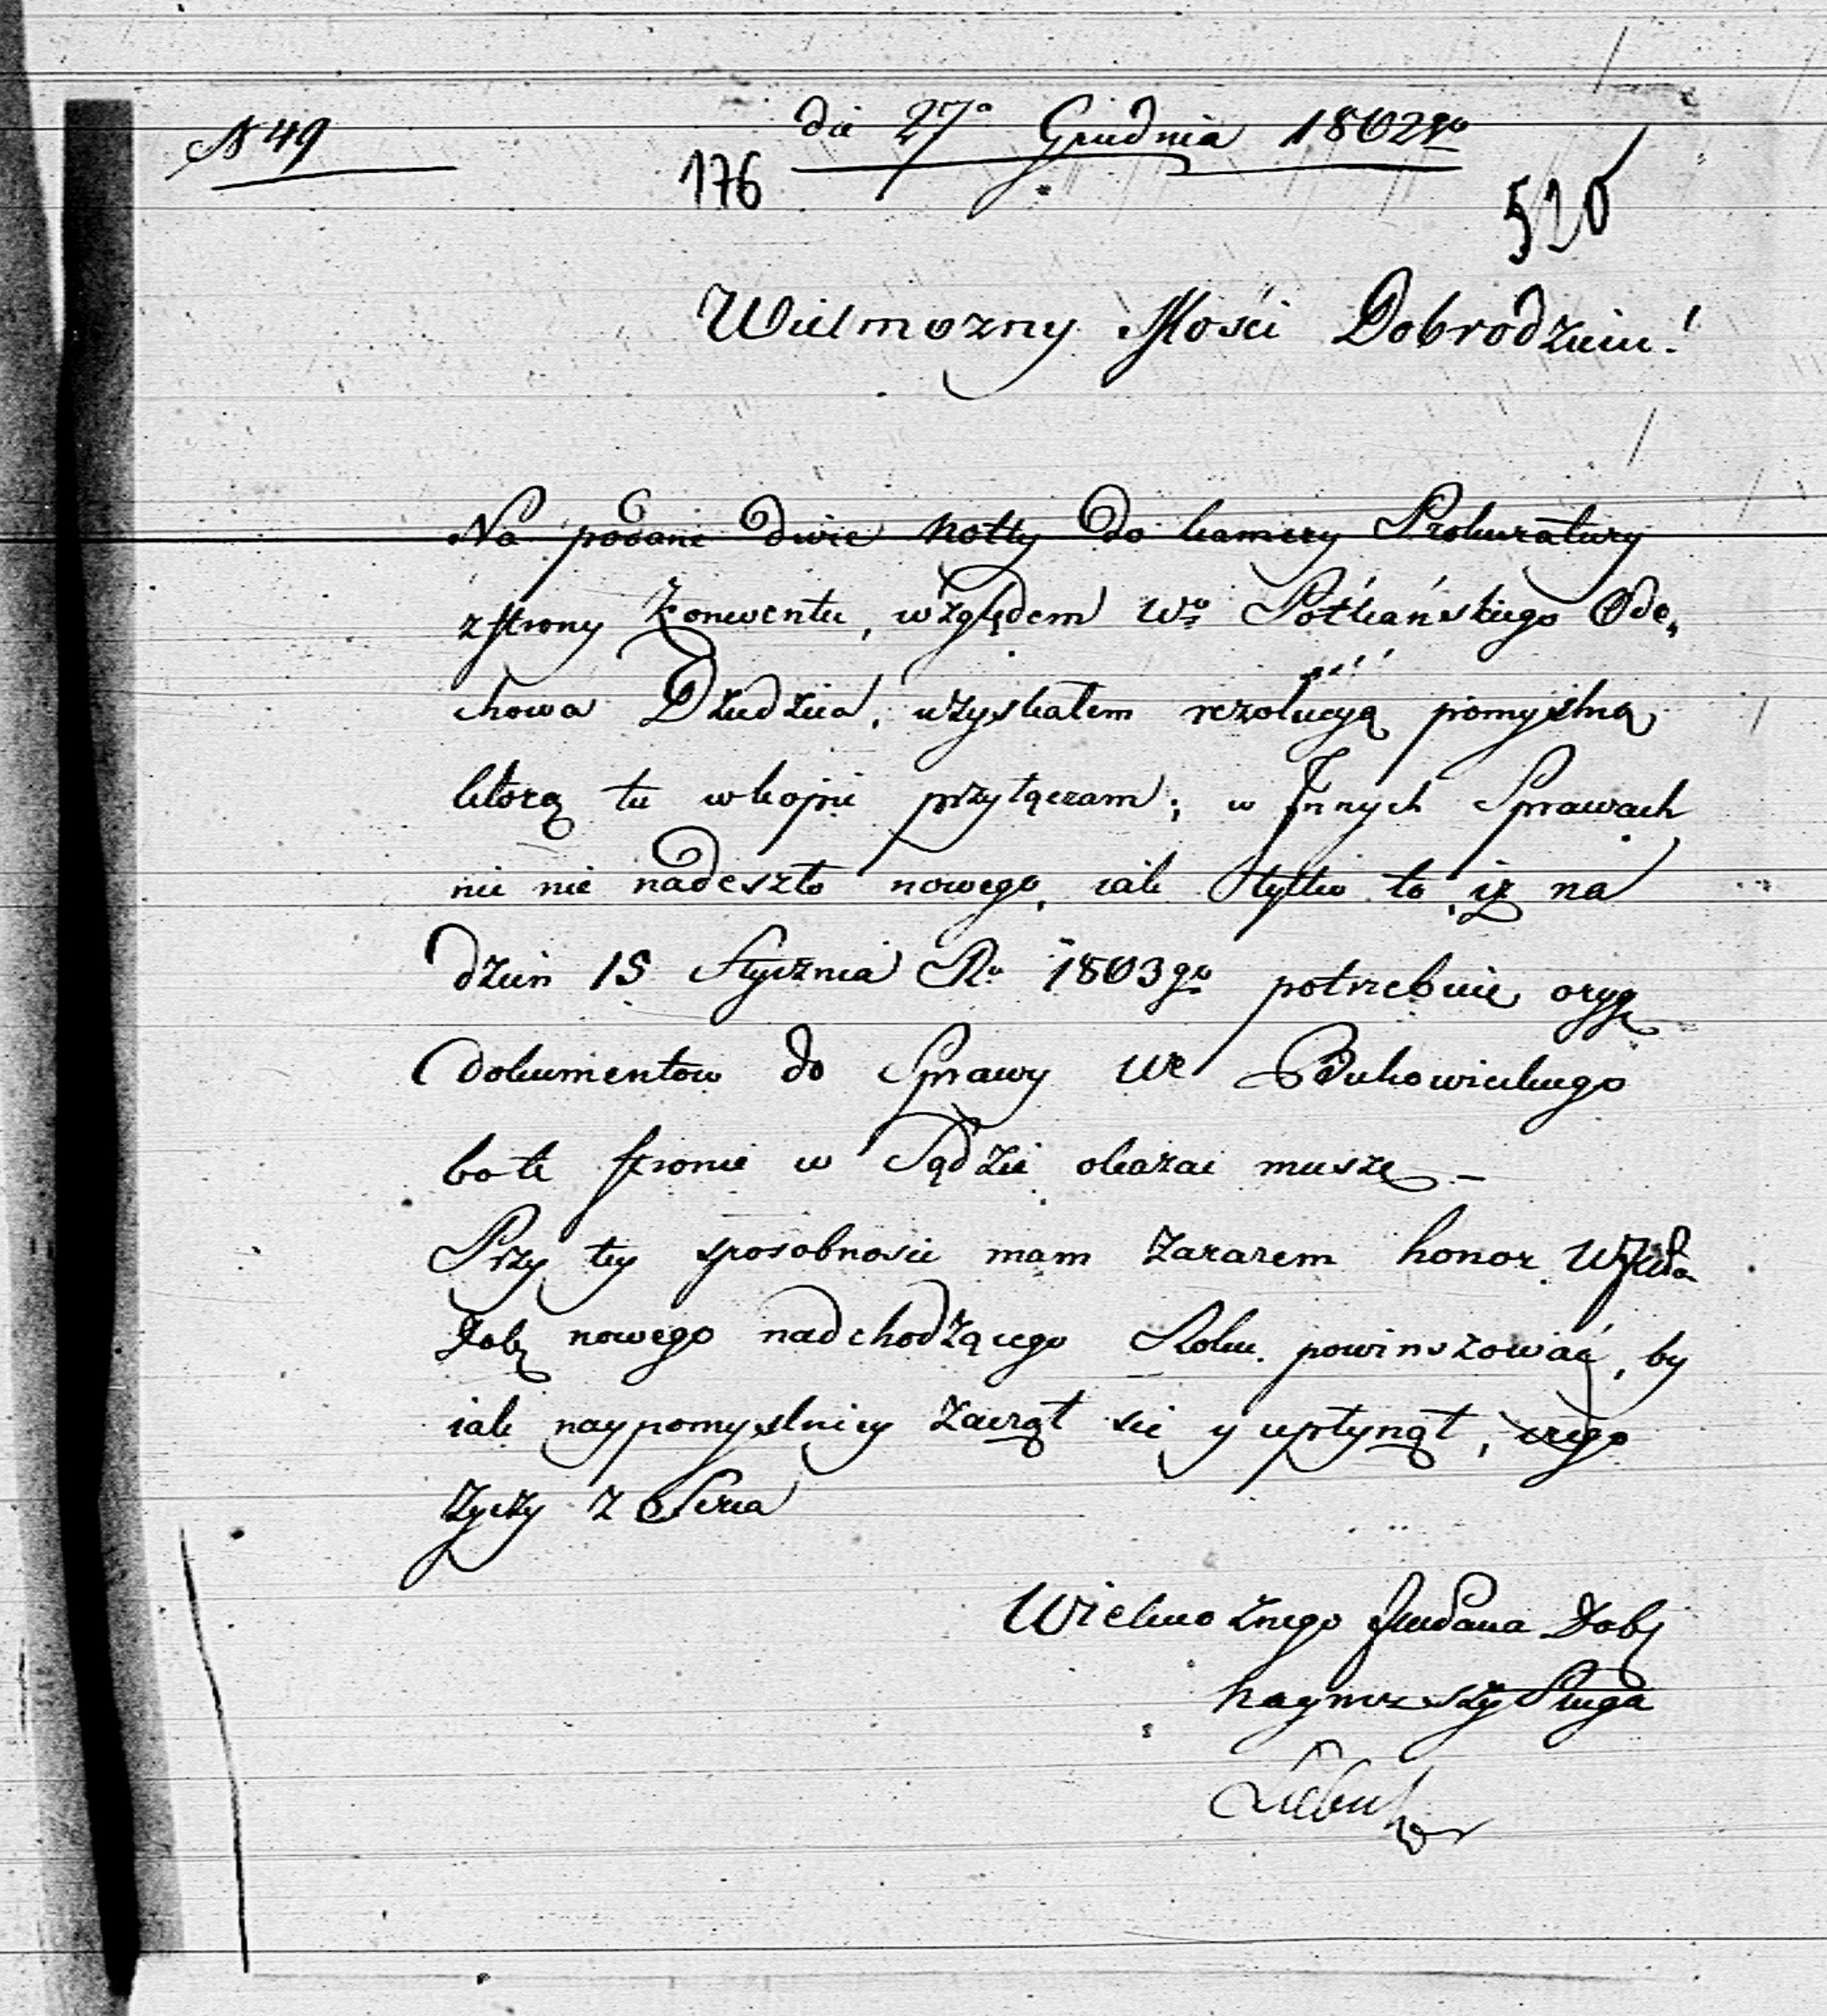 N 49
die 27o Grudnia 1802go
176
520
Wielmozny Mości Dobrodzieiu!
Na podane dwie notty do kamery Prokuratury
z strony konwentu, względem Wo Potkańskiego Ode,
chowa Dziedzica, uzyskałem rezolucyą pomyślną
którą tu w kopii przyłączam; w Innych Sprawach
nic nie nadeszło nowego, iak tylko to, iż na
dzień 15 Stycznia Ro 1803go potrzebuię oryg
Dokumentow do Sprawy We Bukowieckiego
bo te stronie w Sądzie okazać muszę –
Przy tey sposobnosci mam zarazem honor
Dobę nowego nadchodzącego Roku powinszować, by
iak naypomyslniey zaczął się y upłynął, czego
życzy z Serca
Wielmożnego Dobę
nayniższy Sługa